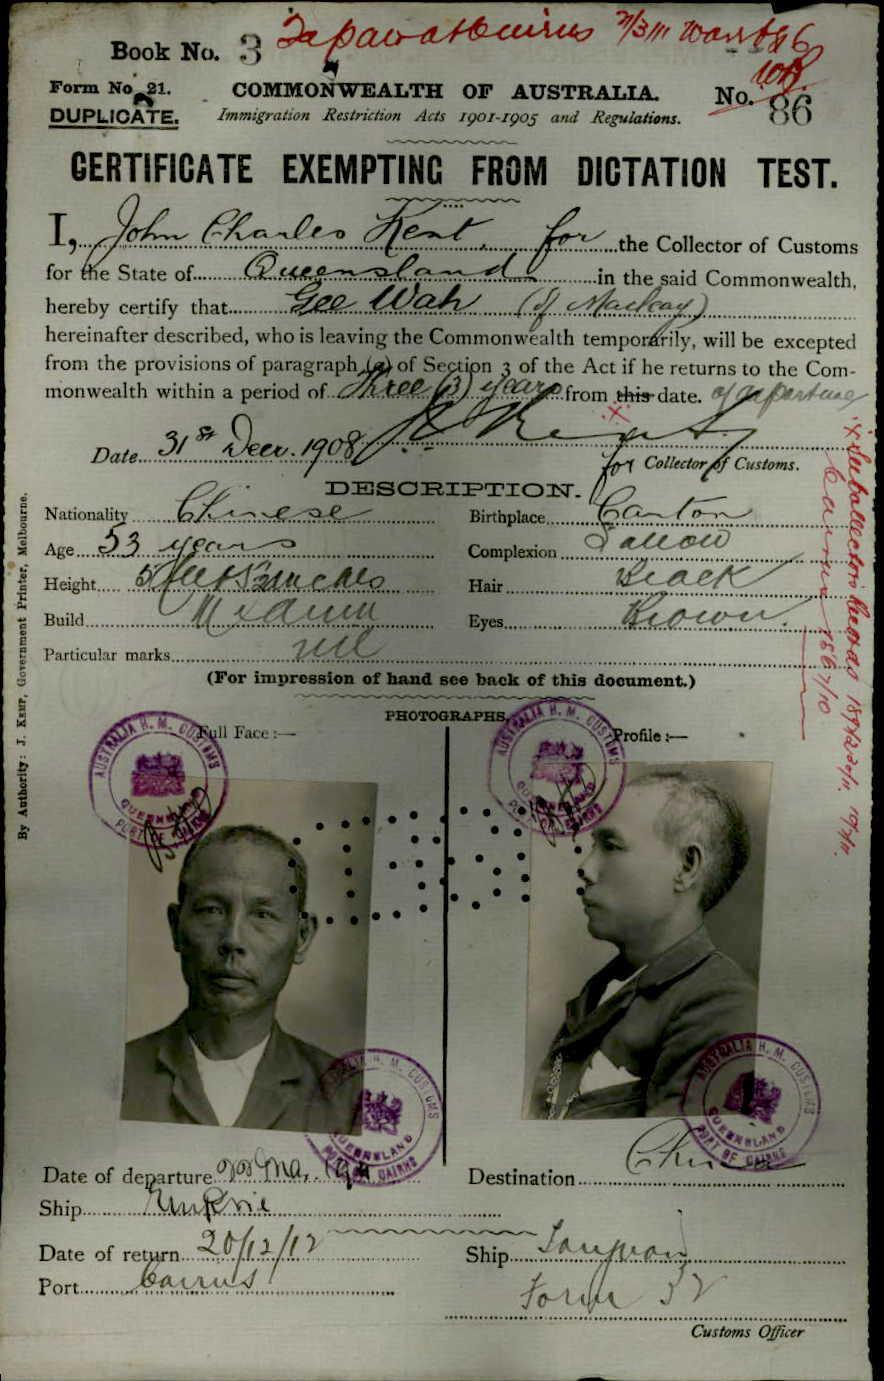 Book No. 3
Form No. 21.
DUPLICATE.
COMMONWEALTH OF AUSTRALIA.
Immigration Restriction Acts 1901-1905 and Regulations.
No. 86
CERTIFICATE EXEMPTING FROM DICTATION TEST.
I, John Charles Kent, for the Collector of Customs
for the State of Queensland in the said Commonwealth,
hereby certify that Gee Wah (of Mackay)
hereinafter described, who is leaving the Commonwealth temporarily, will be excepted
from the provisions of paragraph (a) of Section 3 of the Act if he returns to the Com-
monwealth within a period of three (3) years from this date. of departure
Date 31st Decr. 1908
for Collector of Customs.
DESCRIPTION.
Nationality Chinese
Birthplace Canton
Age 53 years
Complexion Sallow
Height 5 feet inches
Hair Black
Build Medium
Eyes Brown.
Particular marks nil
(For impression of hand see back of this document.)
PHOTOGRAPHS.
Full Face :—
Profile :—
AUSTRALIA H. M. CUSTOMS
QUEENSLAND
PORT OF CAIRNS
AUSTRALIA H. M. CUSTOMS
QUEENSLAND
PORT OF CAIRNS
AUSTRALIA H. M. CUSTOMS
QUEENSLAND
PORT OF CAIRNS
AUSTRALIA H. M. CUSTOMS
QUEENSLAND
PORT OF CAIRNS
Date of departure
Destination China
Ship
Date of return 20/12/12
Ship Taiyuan
Port Cairns
Form 32
Customs Officer
By Authority: J. Kemp, Government Printer, Melbourne.